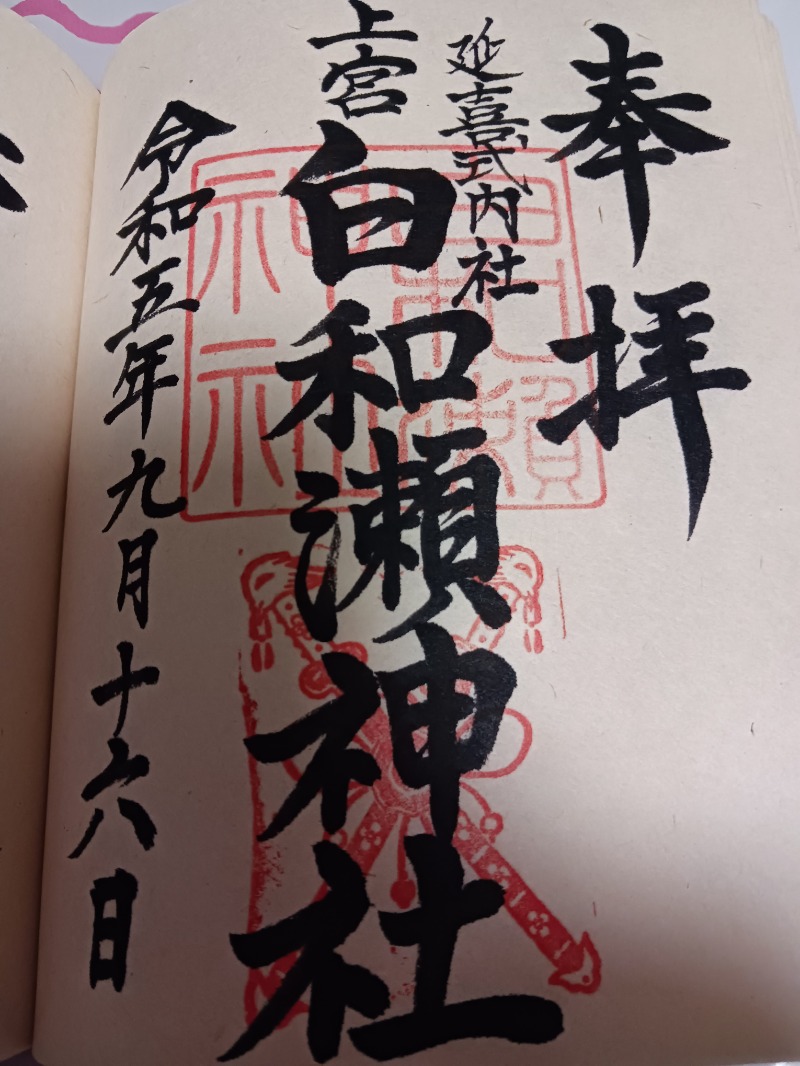 奉拝
延喜式内社
上宮
白和瀬神社
令和五年九月十六日
白和瀬神社